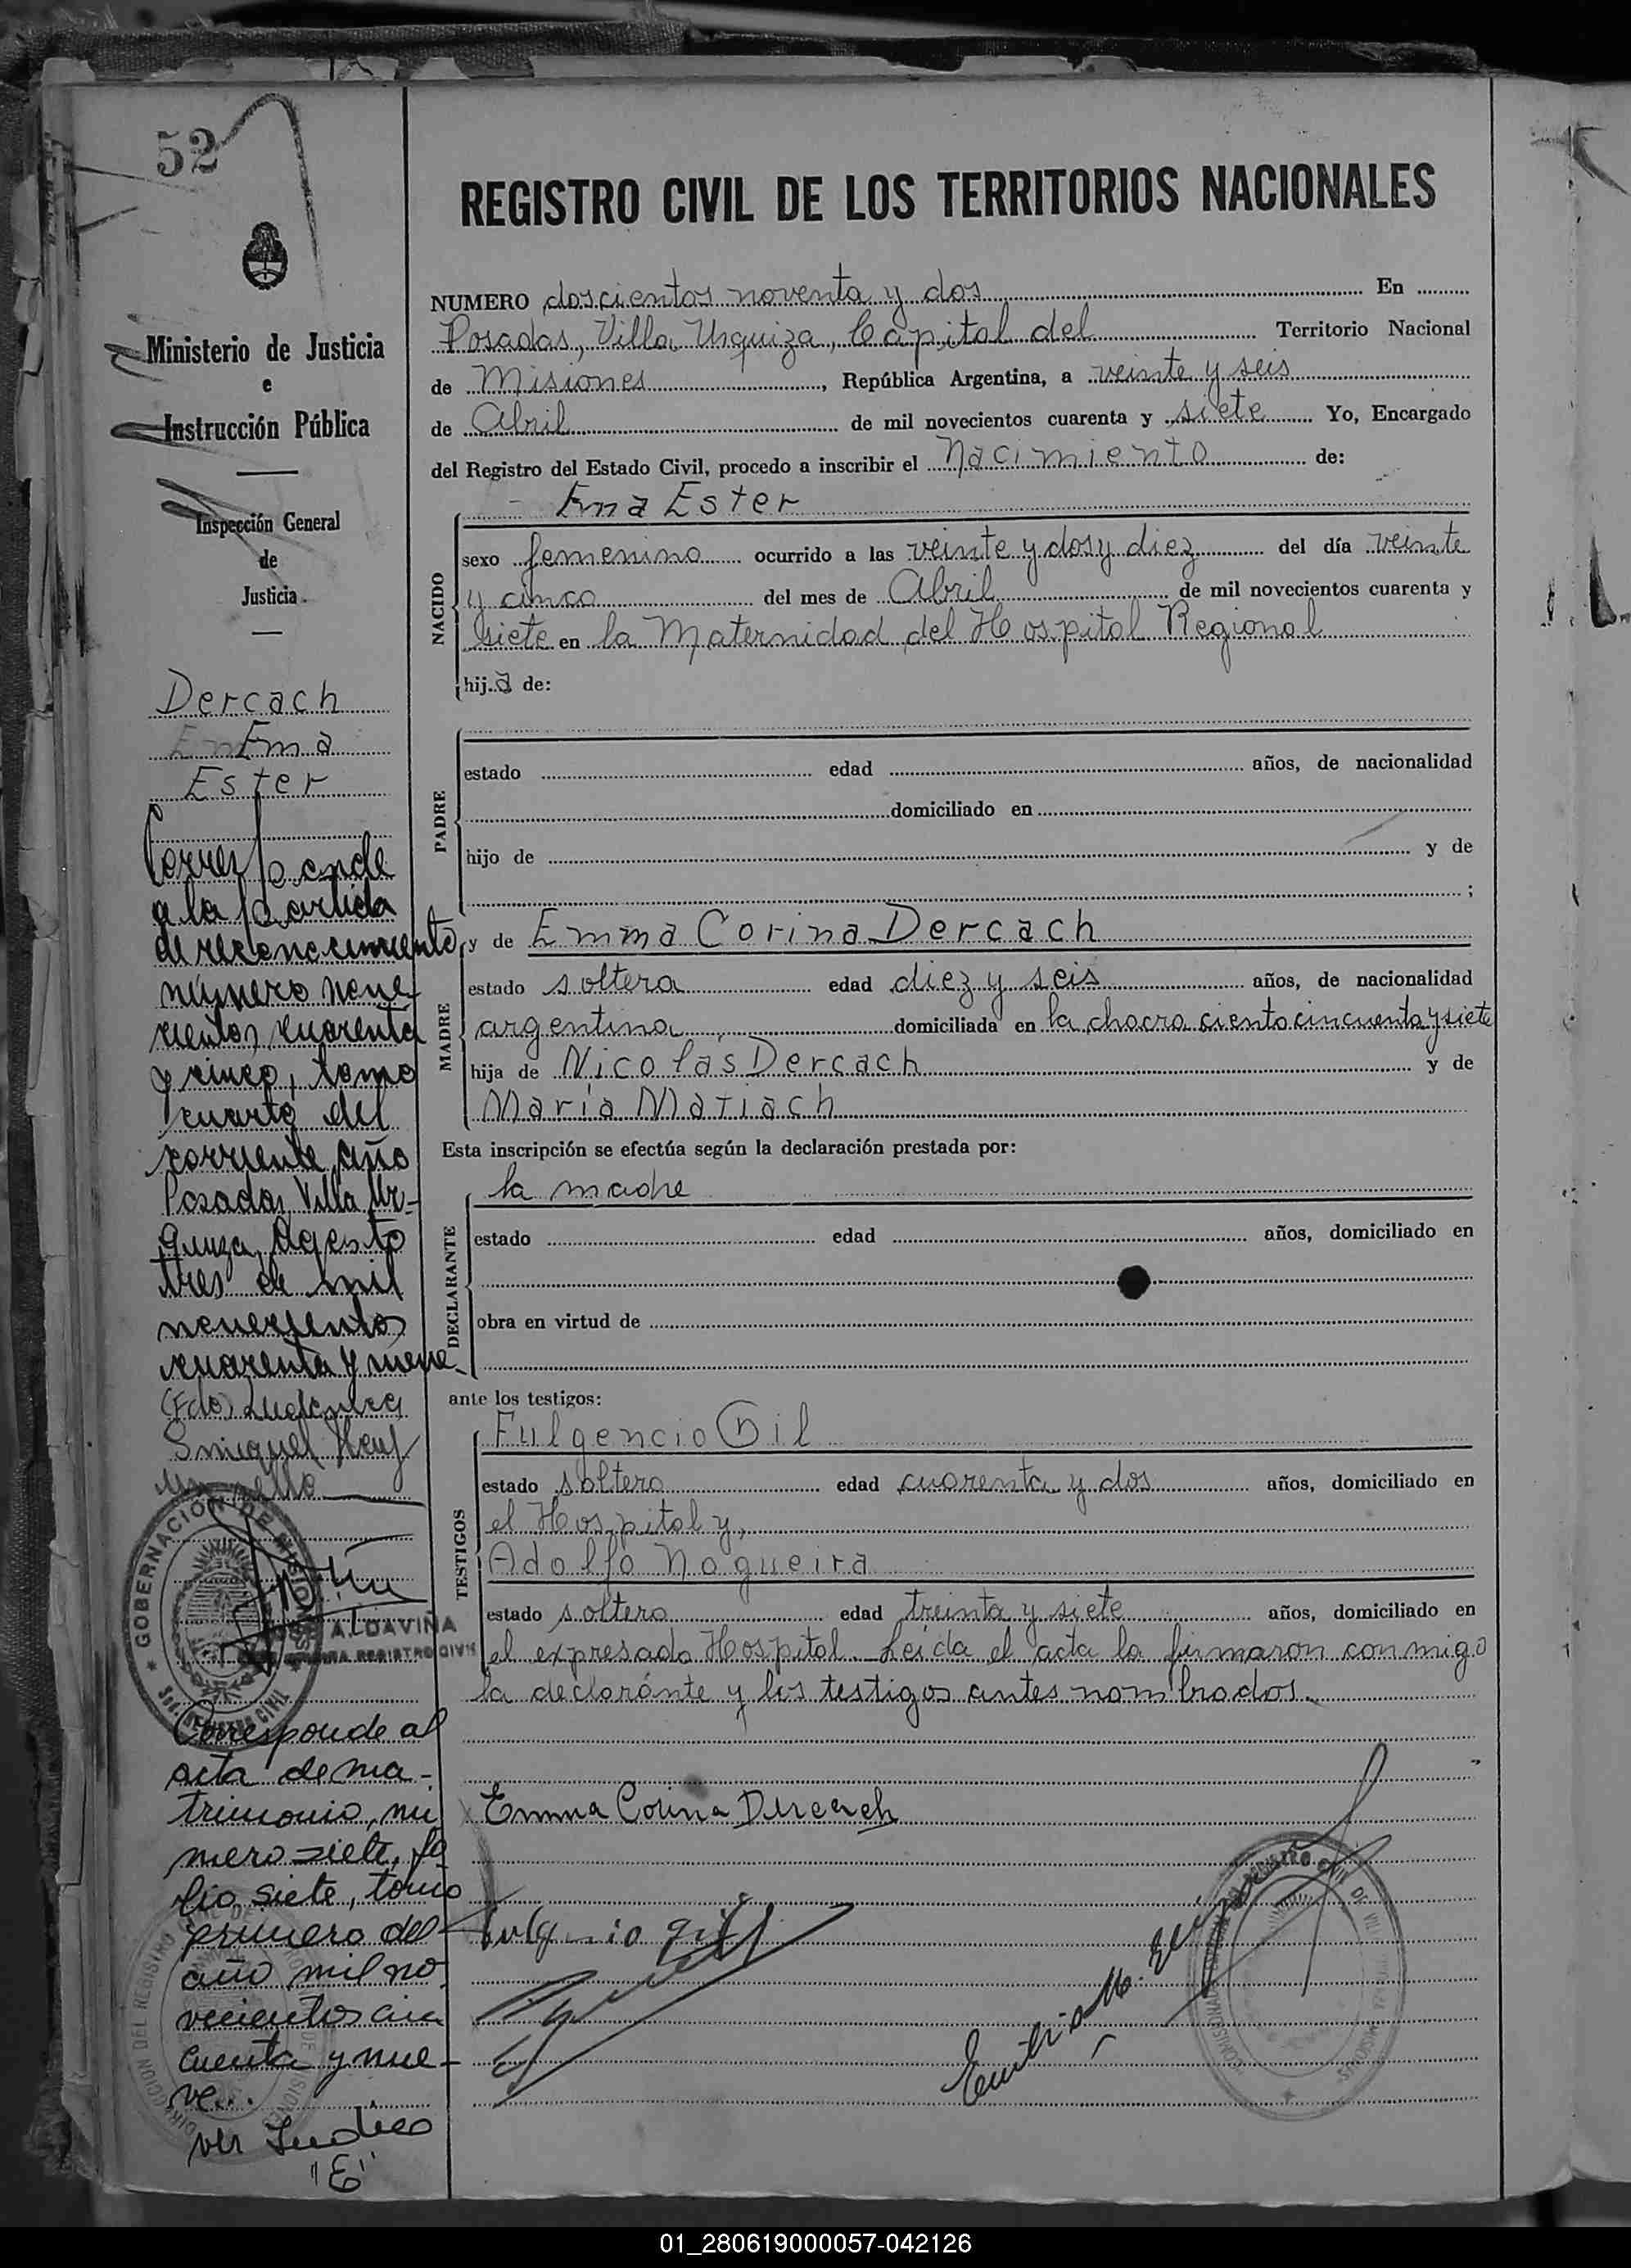 52
Ministerio de Justicia
e
Instrucción Pública
Inspección General
de
Justicia
Dercach
Ema
Ester
Corresponde
a la partida
de reconocimiento
número nove-
cientos cuarenta
y cinco, tomo
cuarto del
corriente año
Posadas, Villa Ur-
quiza, Agosto
tres de mil
novecientos
cuarenta y nueve
(Fdo)
GOBERNACIÓN DE MISIONES
A. DAVIÑA
REGISTRO CIVIL
Corresponde al
acta de ma-
trimonio, nú
mero siete, fo
lio siete, tomo
primero del
año mil no
vecientos cin
cuenta y nue-
ve..
ver Indice
"E"
REGISTRO CIVIL DE LOS TERRITORIOS NACIONALES
NUMERO doscientos noventa y dos En
Posadas, Villa Urquiza, Capital del Territorio Nacional
de Misiones, República Argentina, a veinte y seis
de Abril de mil novecientos cuarenta y siete Yo, Encargado
del Registro del Estado Civil, procedo a inscribir el Nacimiento de:
Ema Ester
NACIDO
sexo femenino ocurrido a las veinte y dos y diez del día veinte
y cinco del mes de Abril de mil novecientos cuarenta y
siete en la Maternidad del Hospital Regional
hija de:
PADRE
estado edad años, de nacionalidad
domiciliado en
hijo de y de
;
MADRE
y de Emma Corina Dercach
estado soltera edad diez y seis años, de nacionalidad
argentina, domiciliada en la chacra ciento cincuenta y siete
hija de Nicolas Dercach y de
María Matiach
Esta inscripción se efectúa según la declaración prestada por:
DECLARANTE
la madre
estado edad años, domiciliado en
obra en virtud de
ante los testigos:
TESTIGOS
Fulgencio Gil
estado soltero edad cuarenta y dos años, domiciliado en
el Hospital y,
Adolfo Nogueira
estado soltero edad treinta y siete años, domiciliado en
el expresado Hospital. Leída el acta la firmaron conmigo
la declarante y los testigos antes nombrados.
Emma Corina Dercach
Fulgencio Gil
01_280619000057-042126